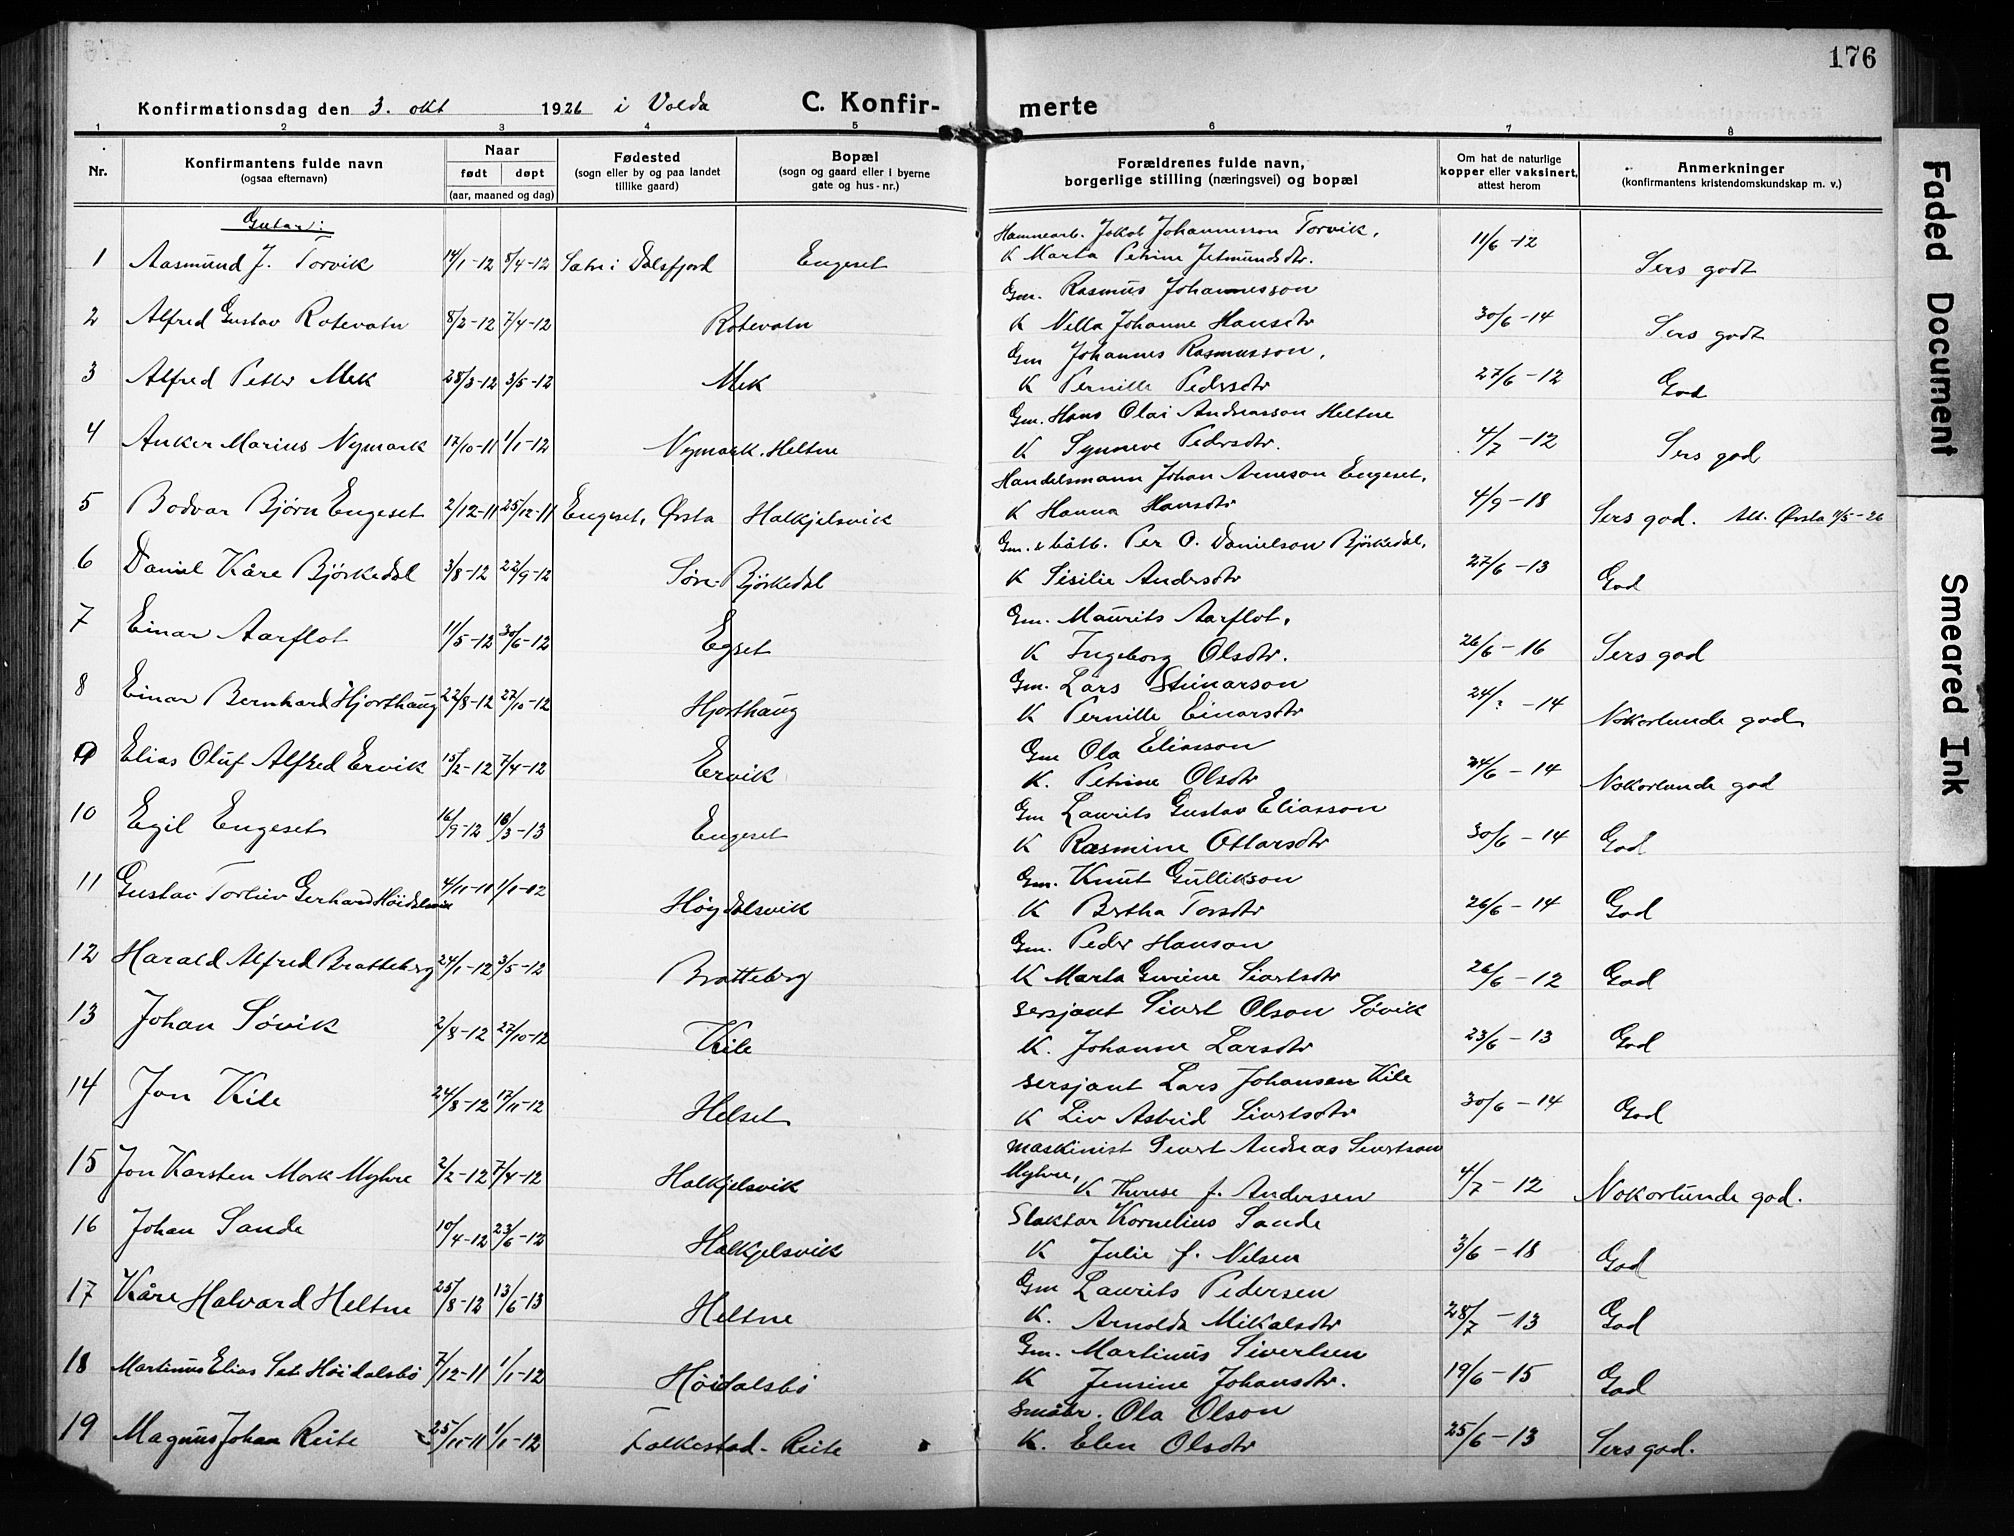 176
Konfirmationsdag den 3. okt 1926 i Volda C. Konfir- merte
1 2 3 4 5 6 7 8
Nr. Konfirmantens fulde navn (ogsaa efternavn) Naar født døpt (aar, maaned og dag) Fødested (sogn eller by og paa landet tillike gaard) Bopæl (sogn og gaard eller i byerne gate og hus-nr.) Forældrenes fulde navn, borgerlige stilling (næringsvei) og bopæl Om hat de naturlige kopper eller vaksinert, attest herom Anmerkninger (konfirmantens kristendomskundskap m. v.)
Gutar:
Hamnearb. Jakob Johannesson Torvik,
1 Aasmund J. Torvik 14/1-12 8/4-12 Sætre i Dalsfjord Engeset K Marta Petrine Jetmundsdtr. 11/6-12 Sers godt
Gm. Rasmus Johannesson
2 Alfred Gustav Rotevatn 8/2-12 7/4-12 Rotevatn K Nella Johanne Hansdtr 30/6-14 Sers godt
Gm Johannes Rasmusson,
3 Alfred Petter Mek 28/3-12 3/5-12 Mek K Pernille Pedersdtr 27/6-12 God
Gm. Hans Olai Andreasson Heltne
4 Anker Marius Nymark 17/10-11 1/1-12 Nymark, Heltne K Synneve Pedersdtr. 4/7-12 Sers god
Handelsmann Johan Arneson Engeset,
5 Bodvar Bjørn Engeset 2/12-11 25/12-11 Engeset, Ørsta Halkjelsvik K Hanna Hansdtr 4/9-18 Sers god. Att. Ørsta 11/5-26
Gm. & båtb. Per O. Danielson Bjørkedal,
6 Daniel Kåre Bjørkedal 3/8-12 22/9-12 Søre Bjørkedal K Sisilie Andersdtr 27/6-13 God
Gm. Maurits Aarflot,
7 Einar Aarflot 11/5-12 30/6-12 Egset K Ingeborg Olsdtr. 26/6-16 Sers god
Gm. Lars Steinarson
8 Einar Bernhard Hjorthaug 22/8-12 27/10-12 Hjorthaug K Pernille Einarsdtr 24/?-14 Nokorlunde god
Gm Ola Eliasson
9 Elias Oluf Alfred Ervik 15/2-12 7/4-12 Ervik K. Petrine Olsdtr 24/6-14 Nokorlunde god
Gm Laurits Gustav Eliasson
10 Egil Engeset 16/9-12 16/3-13 Engeset K Rasmine Ottarsdtr 30/6-14 God
Gm. Knut Gullikson
11 Gustav Torleiv Gerhard Höidalsvik 4/11-10 1/1-12 Høydalsvik K Bertha Torsdtr 26/6-14 God
Gm. Peder Hanson
12 Harald Alfred Bratteberg 24/1-12 3/5-12 Bratteberg K Marta Gurine Sivertsdtr 26/6-12 God
Sersjant Sivert Olson Søvik
13 Johan Søvik 2/8-12 27/10-12 Kile K. Johanne Larsdtr 23/6-13 God
Sersjant Lars Johansen Kile
14 Jon Kile 24/8-12 17/11-12 Helset K Liv Astrid Sivertsdtr 30/6-14 God
Maskinist Sivert Andreas Sivertson
15 Jon Karsten Mork Myhre 2/2-12 7/4-12 Halkjelsvik Myhre, K Therese f. Andersen 4/7-12 Nokorlunde god.
Slaktar Kornelius Sande
16 Johan Sande 10/4-12 23/6-12 Halkjelsvik K Julie f. Nilsen 3/6-18 God
Gm Laurits Pedersen
17 Kåre Halvard Heltne 25/8-12 13/6-13 Heltne K. Arnolda Mikalsdtr 28/7-13 God
Gm. Martinus Sivertsen
18 Martinus Elias Set Höidalsbö 7/12-11 1/1-12 Höidalsbö K Jensine Johansdtr. 19/6-15 God
Småbr. Ola Olson
19 Magnus Johan Reite 25/11-11 1/1-12 Folkestad-Reite K. Elen Olsdtr 25/6-13 Sers god.
Faded Document
Smeared Ink